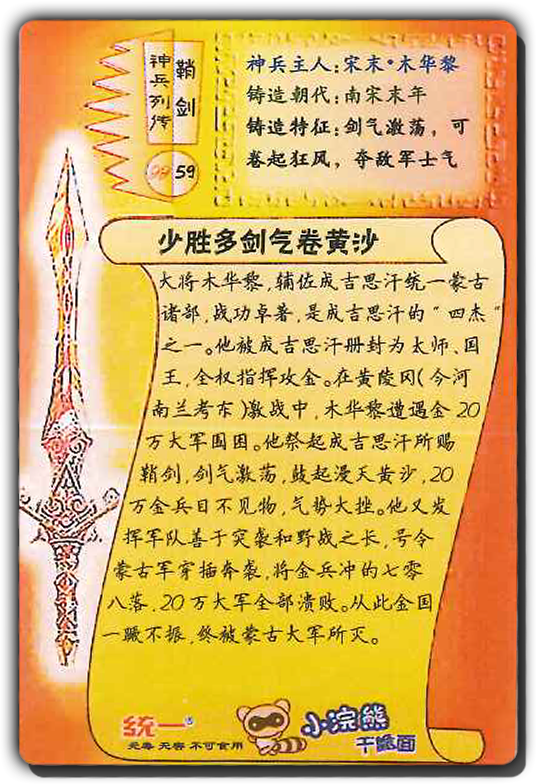 神兵列传
鞘剑
59
神兵主人:宋末·木华黎
铸造朝代:南宋末年
铸造特征:剑气激荡,可
卷起狂风,夺敌军士气
少胜多剑气卷黄沙
大将木华黎,辅佐成吉思汗统一蒙古
诸部,战功卓著,是成吉思汗的“四杰”
之一。他被成吉思汗册封为太师、国
王,全权指挥攻金。在黄陵冈(今河
南兰考东)激战中,木华黎遭遇金20
万大军围困。他祭起成吉思汗所赐
鞘剑,剑气激荡,鼓起漫天黄沙,20
万金兵目不见物,气势大挫。他又发
挥军队善于突袭和野战之长,号令
蒙古军穿插奔袭,将金兵冲的七零
八落,20万大军全部溃败。从此金国
一蹶不振,终被蒙古大军所灭。
统一®
无毒 无害 不可食用
小浣熊
干脆面